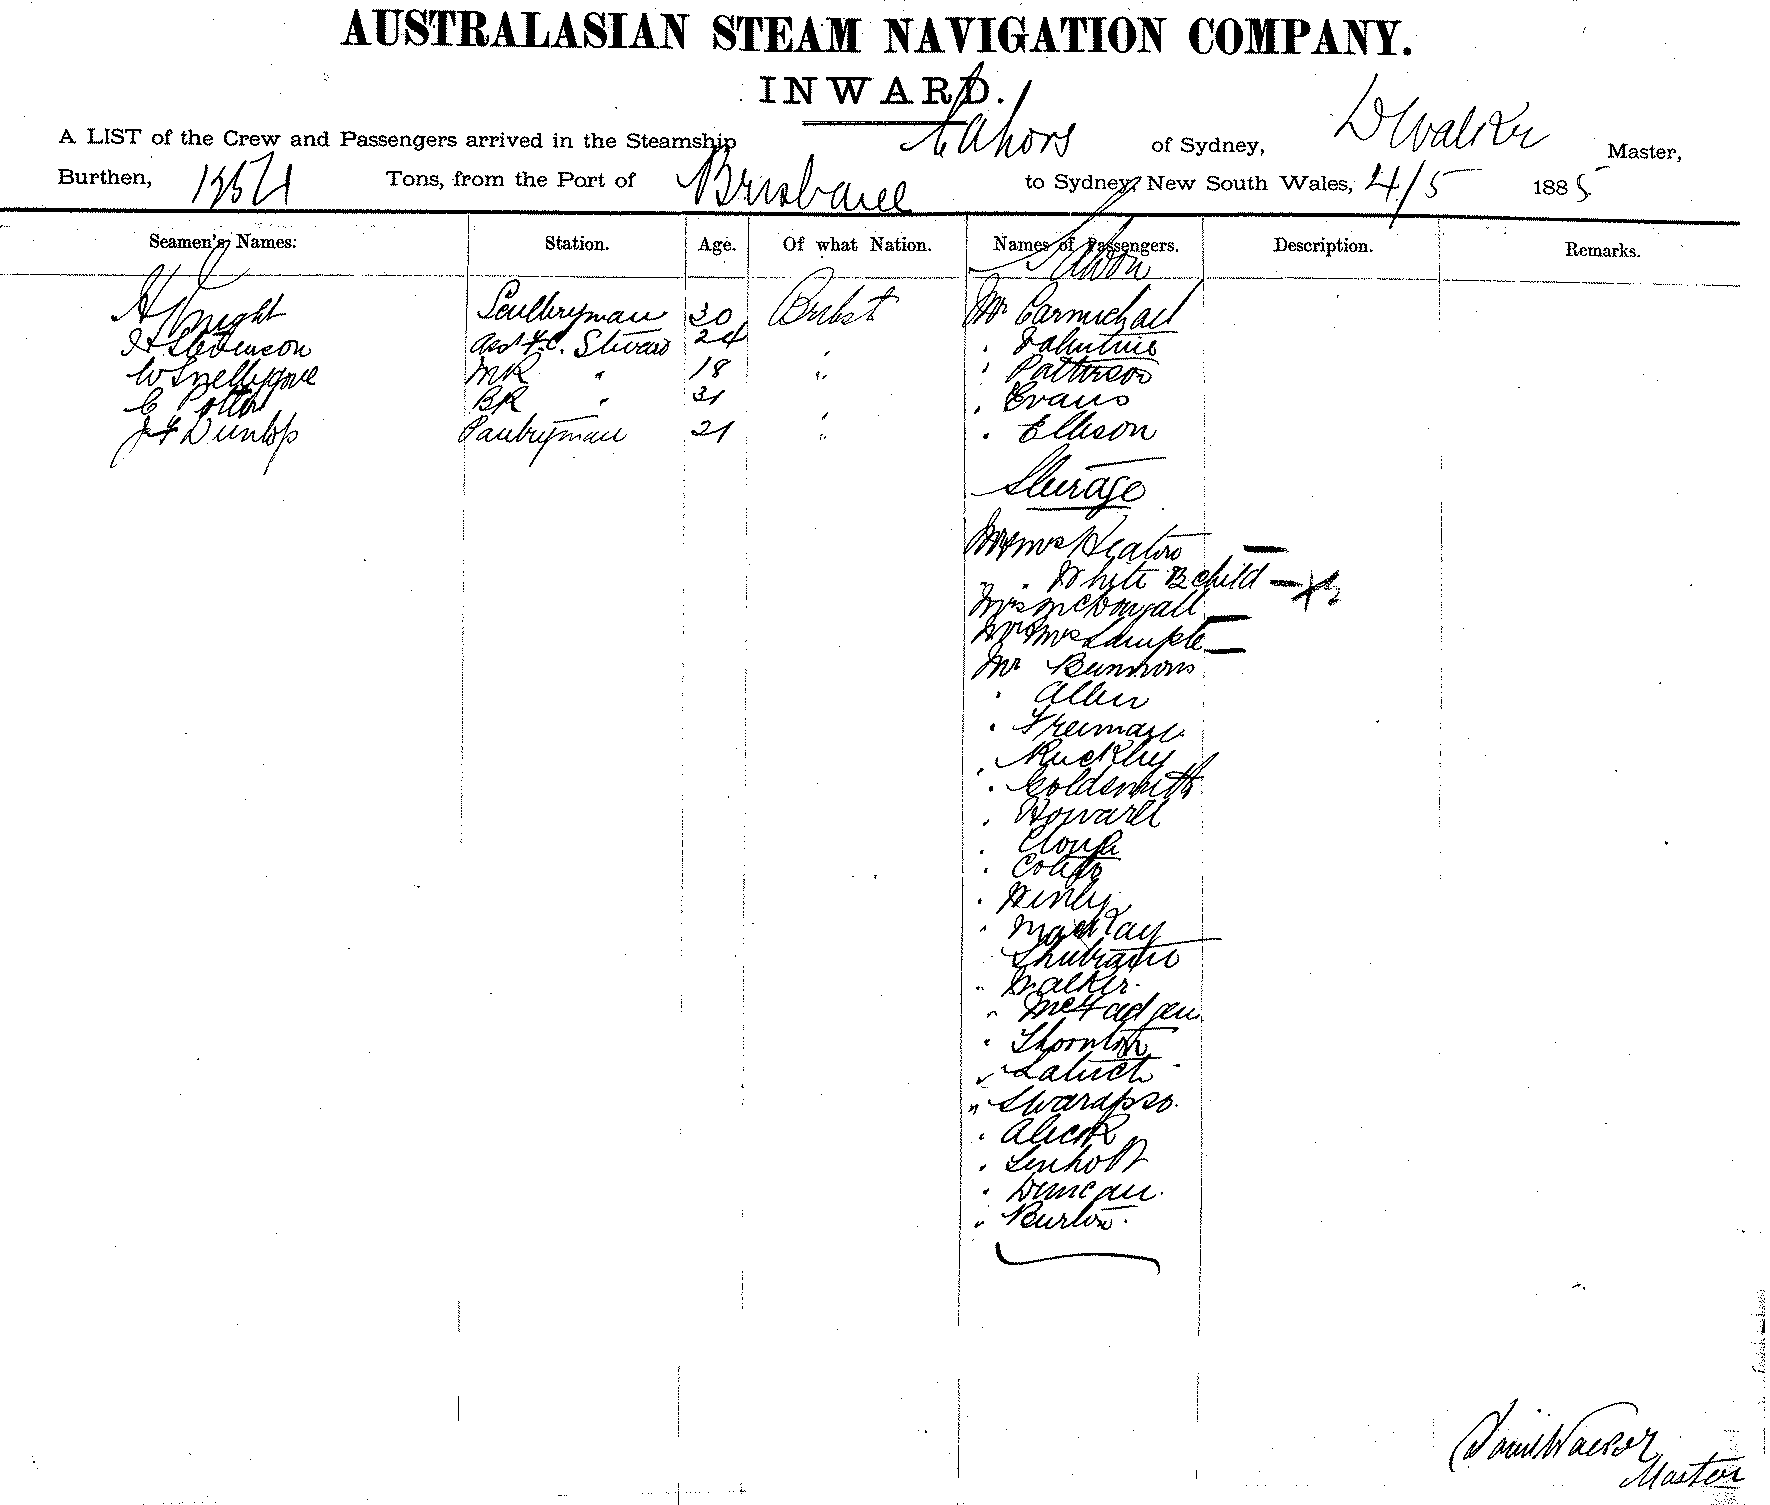 AUSTRALASIAN STEAM NAVIGATION COMPANY.
INWARD.
A LIST of the Crew and Passengers arrived in the Steamship Cahors of Sydney, D Walker Master,
Burthen, 1254 Tons, from the Port of Brisbane to Sydney, New South Wales, 4/5 1885
Seamen's Names. Station. Age. Of what Nation. Names of Passengers. Description. Remarks.
Saloon
H Knight Sculleryman 30 Mr Carmichael
H Stevenson Asst F.C. Steward 24 " Valentine
W Snellgrove MR " 18 " " Patterson
C Potter BR " 31 " Evans
J F Dunlop Pantryman 21 " " Ellison
Steerage
Mr & Mrs Heaton
" " White & child
Mrs McDougall
Mr Mrs Sample
Mr
" Allen
"
" Buckley
" Goldsmith
" Howard
" Clough
"
" Henley
" MacKay
" Walker
" McFadgen
" Thornton
"
"
"
"
" Duncan
" Burton
David Walker
Master